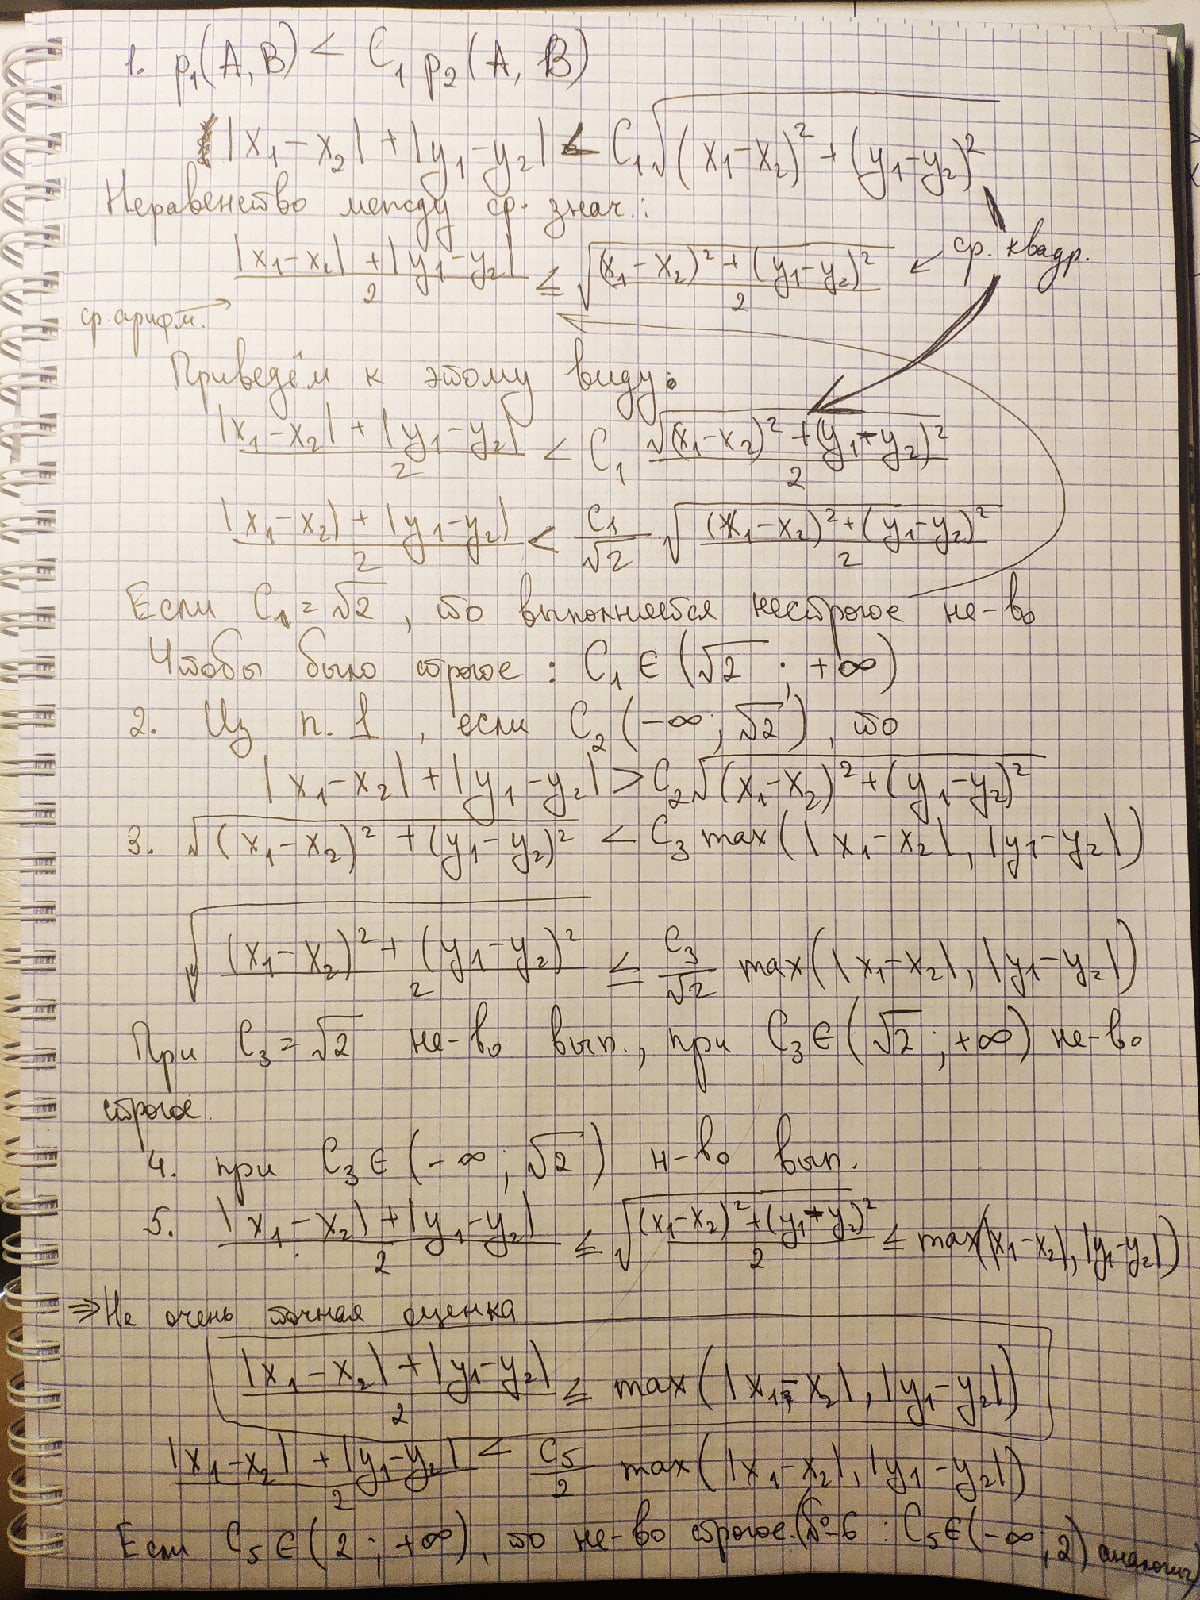 1. p₁(A, B) < C₁ p₂(A, B)
|x₁-x₂| + |y₁-y₂| < C₁√((x₁-x₂)² + (y₁-y₂)²)
Неравенство между ср. знач.:
(|x₁-x₂| + |y₁-y₂|)/2 ≤ √(((x₁-x₂)² + (y₁-y₂)²)/2) ← ср. квадр.
ср. арифм.
Приведём к этому виду:
(|x₁-x₂| + |y₁-y₂|)/2 < C₁ √((x₁-x₂)² + (y₁-y₂)²)/2
(|x₁-x₂| + |y₁-y₂|)/2 < C₁/√2 √(((x₁-x₂)² + (y₁-y₂)²)/2)
Если C₁ = √2, то выполняется нестрогое не-во
Чтобы было строгое: C₁ ∈ (√2; +∞)
2. Из п. 1, если C₂ (-∞; √2), то
|x₁-x₂| + |y₁-y₂| > C₂√((x₁-x₂)² + (y₁-y₂)²)
3. √((x₁-x₂)² + (y₁-y₂)²) < C₃ max(|x₁-x₂|, |y₁-y₂|)
√(((x₁-x₂)² + (y₁-y₂)²)/2) ≤ C₃/√2 max(|x₁-x₂|, |y₁-y₂|)
При C₃ = √2 не-во вып., при C₃ ∈ (√2; +∞) не-во
строгое.
4. при C₃ ∈ (-∞; √2) н-во вып.
5. (|x₁-x₂| + |y₁-y₂|)/2 ≤ √(((x₁-x₂)² + (y₁-y₂)²)/2) ≤ max(|x₁-x₂|, |y₁-y₂|)
⇒ Не очень точная оценка
(|x₁-x₂| + |y₁-y₂|)/2 ≤ max(|x₁-x₂|, |y₁-y₂|)
(|x₁-x₂| + |y₁-y₂|)/2 < C₅/2 max(|x₁-x₂|, |y₁-y₂|)
Если C₅ ∈ (2; +∞), то не-во строгое. (№6: C₅ ∈ (-∞; 2) аналогич)